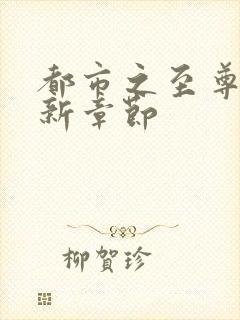 都市之至尊
新章節
柳賀珍